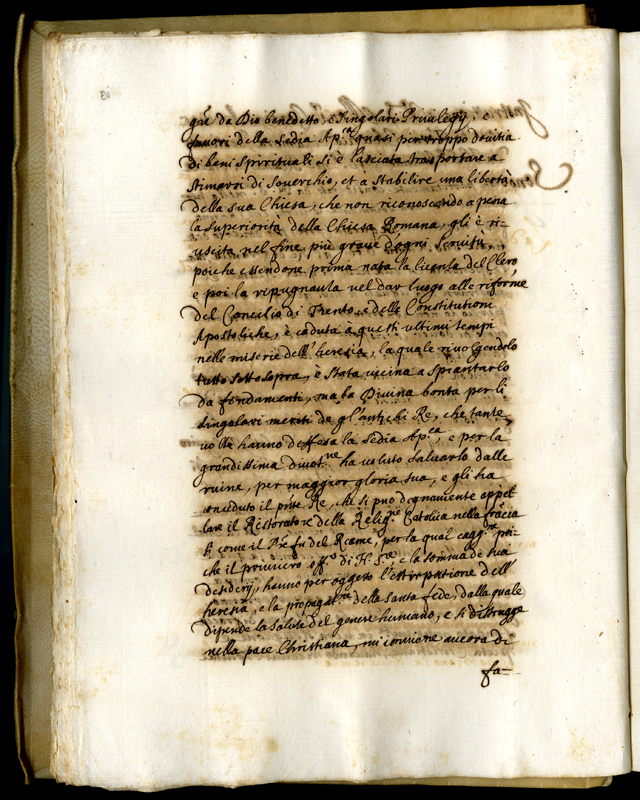 gni da Dio benedetto, e singolari Privilegij, e
favori della Sedia Ap.ca quasi per troppo douitia
di beni spirituali si è lasciata trasportare a
stimarsi di souerchio, et a stabilire una libertà
della sua Chiesa, che non riconoscendo a pena
la superiorità della Chiesa Romana, gli è ri-
uscita nel fine più graue d'ogni seruitù,
poiche essendone prima nata la licenza del Clero
e poi la repugnanza nel dar luogo alle riforme
del Concilio di Trento, e delle Constitutioni
Apostoliche, è caduta à questi ultimi tempi
nelle miserie dell'heresia, la quale riuolgendolo
tutto sottosopra, è stata uicina a spiantarlo
da fondamenti, ma la Diuina bontà per li
singolari meriti de gl'antichi Re, che tante
uolte hanno difesa la Sedia Ap.ca, e per la
grandissima diuot.ne ha uoluto saluarlo dalle
ruine, per maggior gloria sua, e gli ha
conceduto il pnte Re, che si può degnamente appel
lare il Ristoratore della Relig.ne Catolica nella francia
si come il P.re fu del Reame, per la qual cagg.ne poi-
che il primiero off.o di N. S.re, e la somma de suoi
desiderij, hanno per oggetto l'estirpatione dell'
heresia, e la propagat.ne della santa fede, dalla quale
dipende la salute del genere humano, e si distrugge
nella pace Christiana, mi commise ancora di
fa-